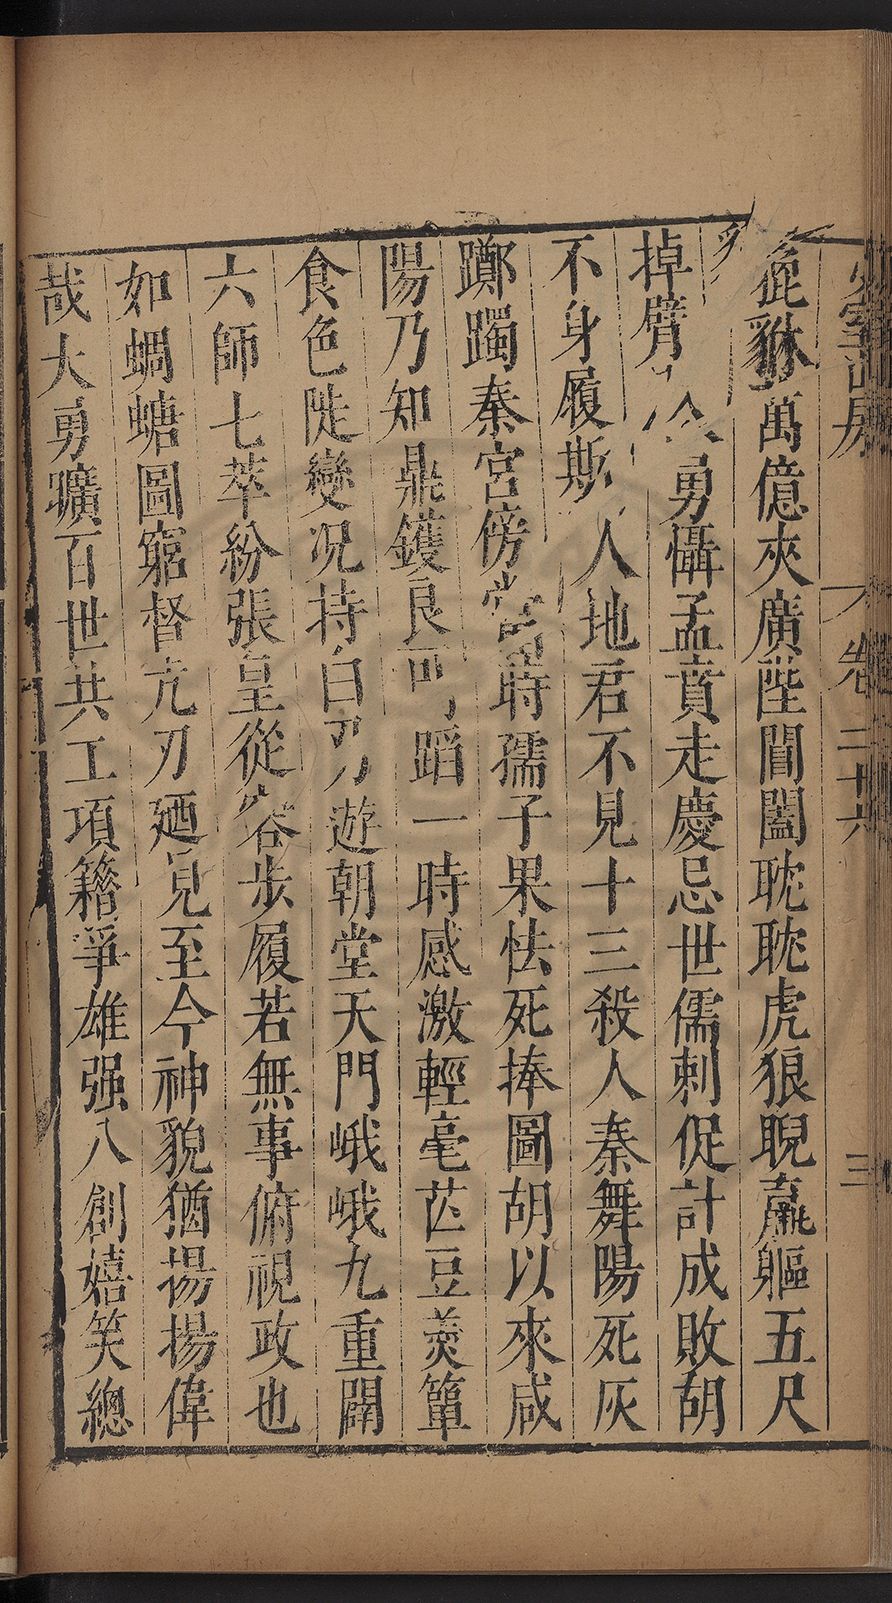 少室山房 卷二十六 三
羆貅萬億夾廣陛閶闔耽耽虎狼睨羸軀五尺
掉臂 勇懾孟賁走慶忌世儒刺促計成敗胡
不身履斯人地君不見十三殺人秦舞陽死灰
躑躅秦宮傍當時孺子果怯死捧圖胡以來咸
陽乃知鼎鑊良可蹈一時感激輕毫芒豆羮簞
食色陡變况持白刃遊朝堂天門峨峨九重闢
六師七萃紛張皇從容步履若無事俯視政也
如蜩螗圖窮督亢刃廼見至今神貌猶揚揚偉
哉大勇曠百世共工項籍爭雄强八創嬉笑總